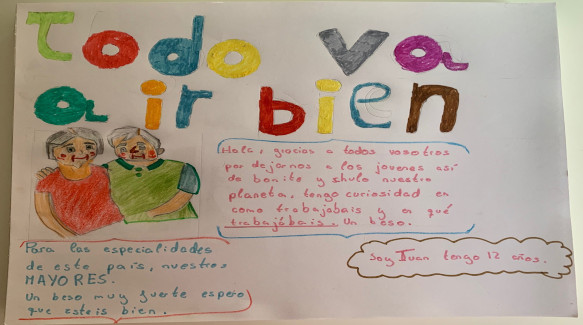 Todo va
a ir bien
Hola, gracias a todos vosotros
por dejarnos a los jovenes así
de bonito y chulo nuestro
planeta, tengo curiosidad en
como trabajabais y en qué
trabajábais. Un beso.
Para las especialidades
de este país, nuestros
MAYORES.
Un beso muy fuerte espero
que esteis bien.
Soy Iván tengo 12 años.